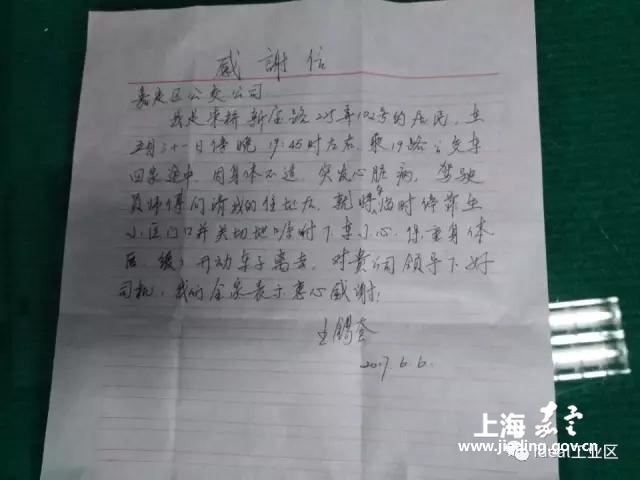 感謝信
嘉定区公交公司
我是朱桥新庙路225弄102号的居民，在
五月三十一日傍晚19:45时左右，乘19路公交车
回家途中，因身体不适，突发心脏病，驾驶
员师傅问清我的住址后，就将车临时停靠在
小区门口并关切地嘱咐下车小心，保重身体
后，缓缓开动车子离去，对贵公司领导下好
司机，我的全家表示衷心感谢！
王锡
2017.6.6.
上海嘉定
www.jiading.gov.cn
Ideal工业区